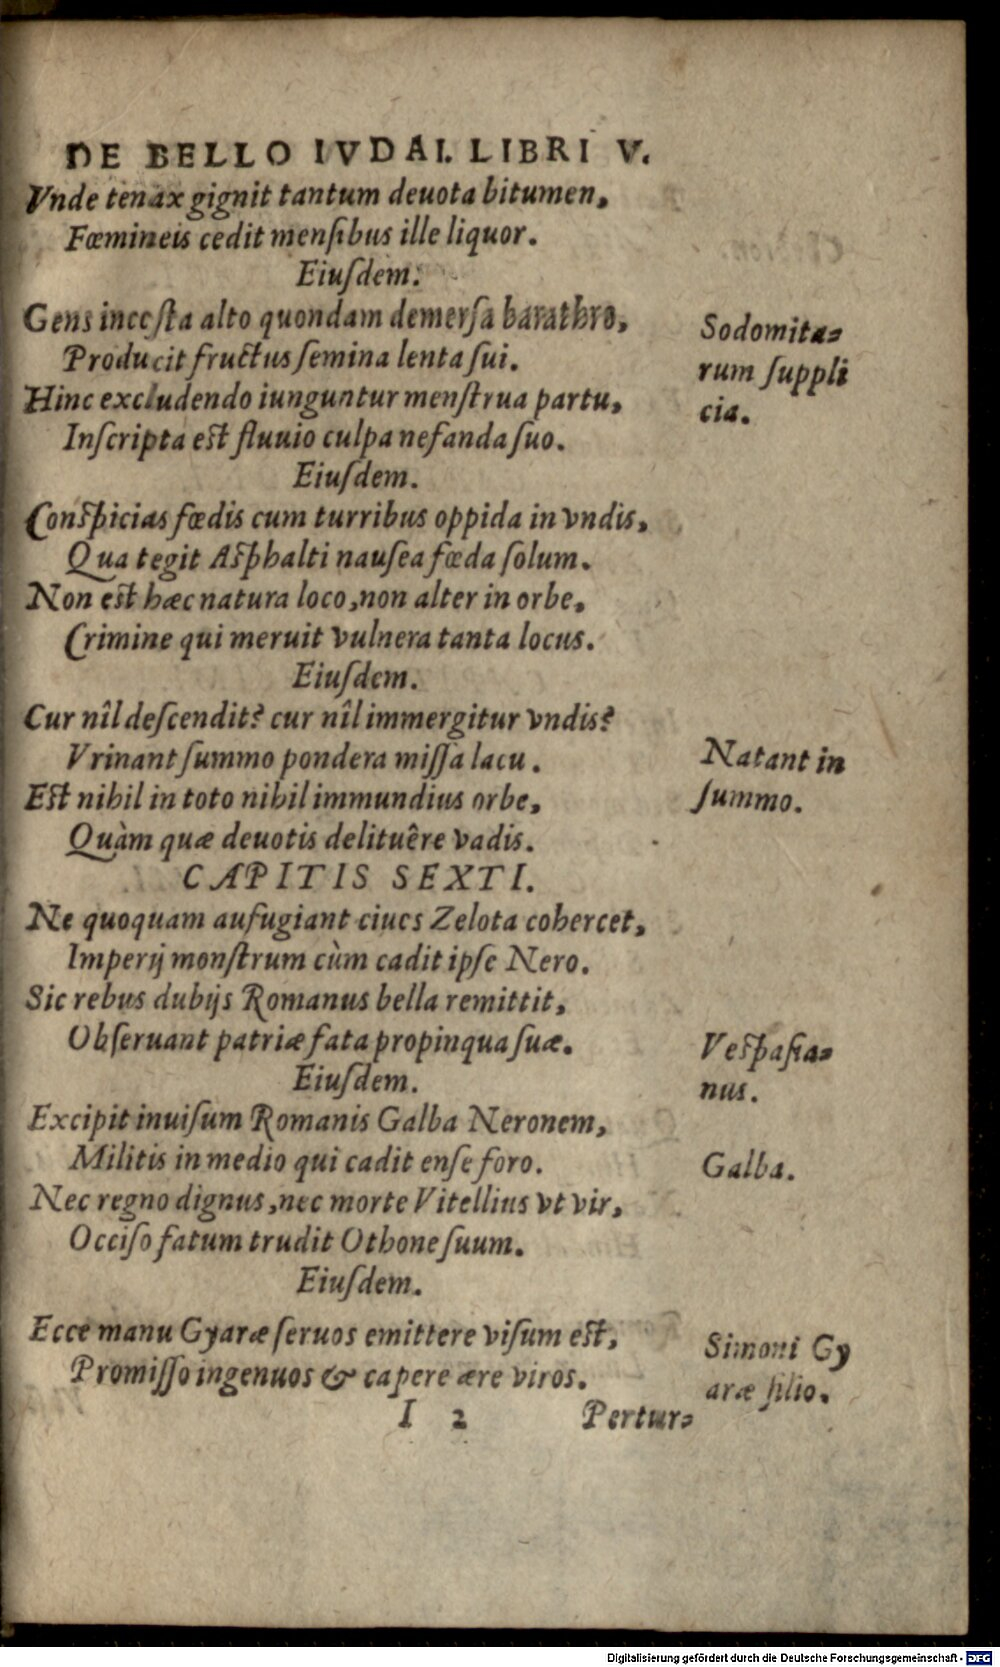 DE BELLO IVDAI. LIBRI V.
Vnde tenax gignit tantum deuota bitumen,
Fœmineis cedit menſibus ille liquor.
Eiuſdem.
Gens inceſta alto quondam demerſa barathro,
Sodomita=
Producit fructus ſemina lenta ſui.
rum ſuppli
Hinc excludendo iunguntur menſtrua partu,
cia.
Inſcripta est fluuio culpa nefanda ſuo.
Eiuſdem.
Conſpicias fœdis cum turribus oppida in vndis,
Qua tegit Aſphalti nauſea fœda ſolum.
Non est hæc natura loco, non alter in orbe,
Crimine qui meruit vulnera tanta locus.
Eiuſdem.
Cur nîl deſcendit? cur nîl immergitur vndis?
Vrinant ſummo pondera miſſa lacu.
Natant in
Est nihil in toto nihil immundius orbe,
ſummo.
Quàm quæ deuotis delituêre vadis.
CAPITIS SEXTI.
Ne quoquam aufugiant ciues Zelota cohercet,
Imperij monſtrum cùm cadit ipſe Nero.
Sic rebus dubijs Romanus bella remittit,
Obſeruant patriæ fata propinqua ſuæ.
Veſpaſia=
Eiuſdem.
nus.
Excipit inuiſum Romanis Galba Neronem,
Militis in medio qui cadit enſe foro.
Galba.
Nec regno dignus, nec morte Vitellius vt vir,
Occiſo fatum trudit Othone ſuum.
Eiuſdem.
Ecce manu Gyaræ ſeruos emittere viſum est,
Simoni Gy
Promiſſo ingenuos & capere ære viros.
aræ filio.
I 2 Pertur=
Digitalisierung gefördert durch die Deutsche Forschungsgemeinschaft - DFG